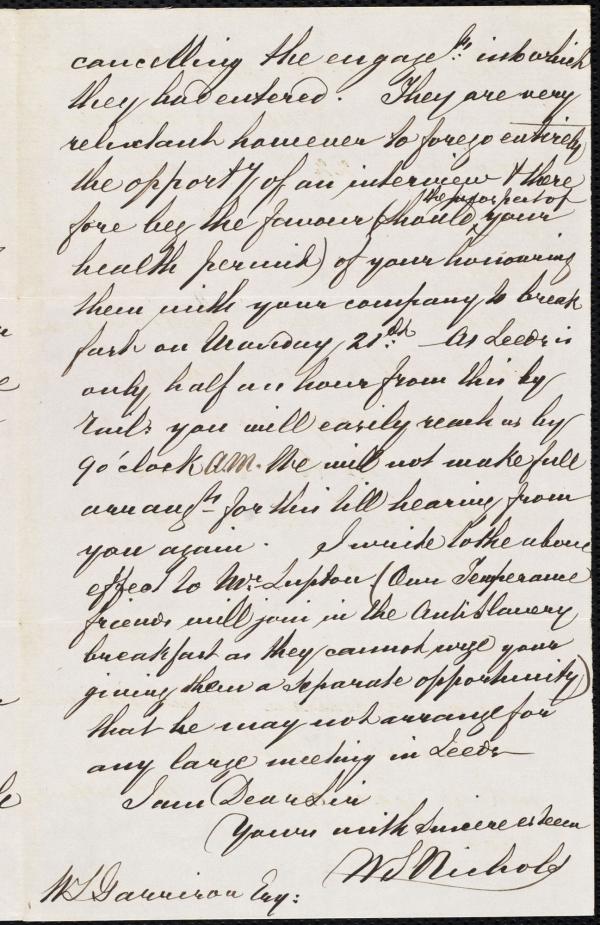 cancelling the engagets: into which
they had entered. They are very
reluctant however to forego entirely
the opporty of an interview & there
the improvement of
fore beg the favour (should ^ your
health permit) of your honouring
them with your company to break
fast on Monday 21st. As Leeds is
only half an hour from this by
rail: you will easily reach us by
9 o'clock AM. We will not make full
arrangts for this till hearing from
you again. I write to the above
effect to Mr. Lupton (Our Temperance
friends will join in the Antislavery
breakfast as they cannot urge your
giving them a separate opportunity)
that he may not arrange for
any large meeting in Leeds
I am Dear Sir
Yours with sincere esteem
W S Nichols
W L Garrison Esq: